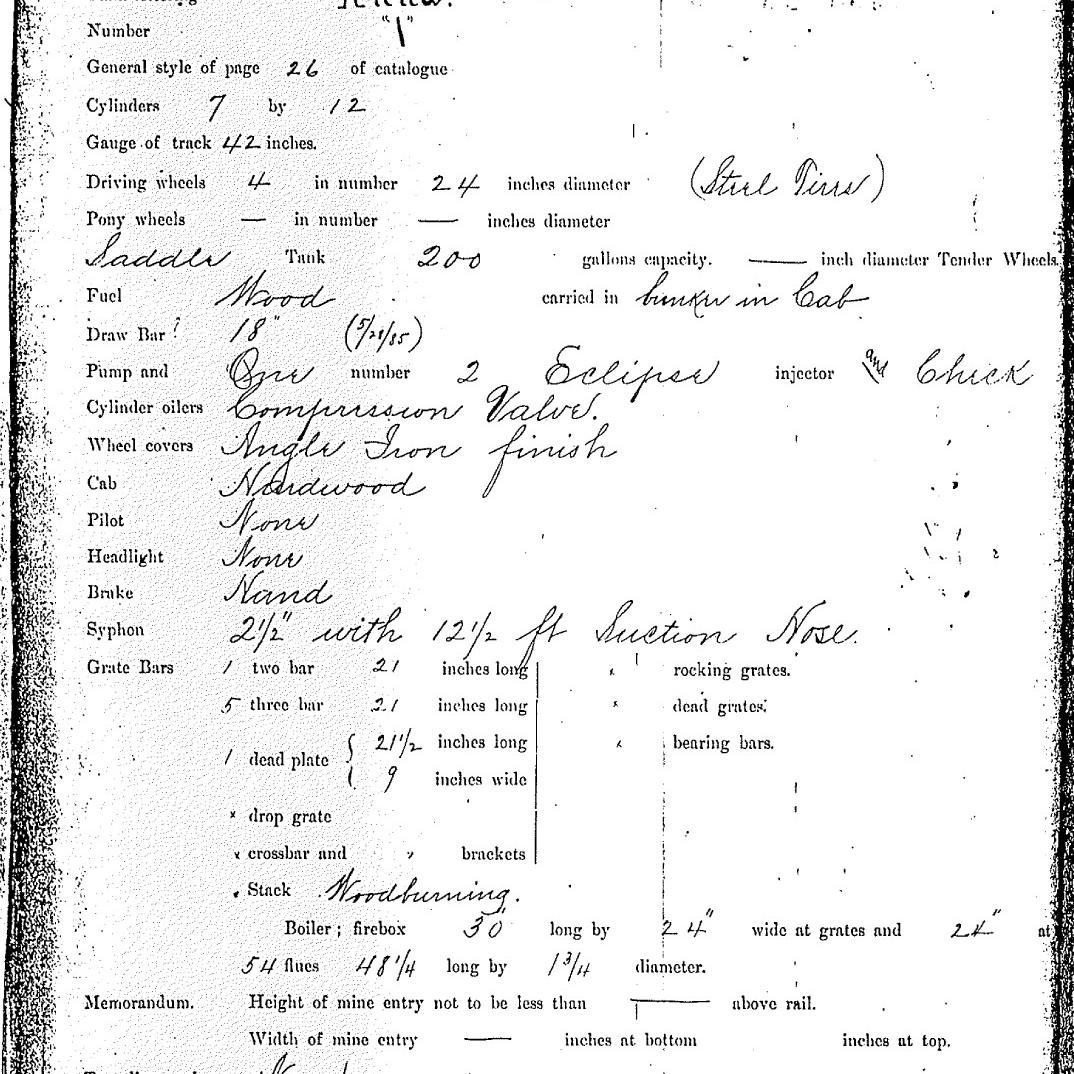 Number "1"
General style of page 26 of catalogue
Cylinders 7 by 12
Gauge of track 42 inches.
Driving wheels 4 in number 24 inches diameter (Steel Tires)
Pony wheels — in number — inches diameter
Saddle Tank 200 gallons capacity. — inch diameter Tender Wheels.
Fuel Wood carried in bunker in Cab
Draw Bar 18" (5/28/85)
Pump and One number 2 Eclipse injector and Check
Cylinder oilers Compression Valve.
Wheel covers Angle Iron finish
Cab Hardwood
Pilot None
Headlight None
Brake Hand
Syphon 2½" with 12½ ft Suction Hose.
Grate Bars 1 two bar 21 inches long x rocking grates.
5 three bar 21 inches long x dead grates.
1 dead plate { 21½ inches long x bearing bars.
9 inches wide
x drop grate
x crossbar and " brackets
Stack Woodburning.
Boiler; firebox 30" long by 24" wide at grates and 24" at
54 flues 48¼ long by 1¾ diameter.
Memorandum. Height of mine entry not to be less than — above rail.
Width of mine entry — inches at bottom inches at top.